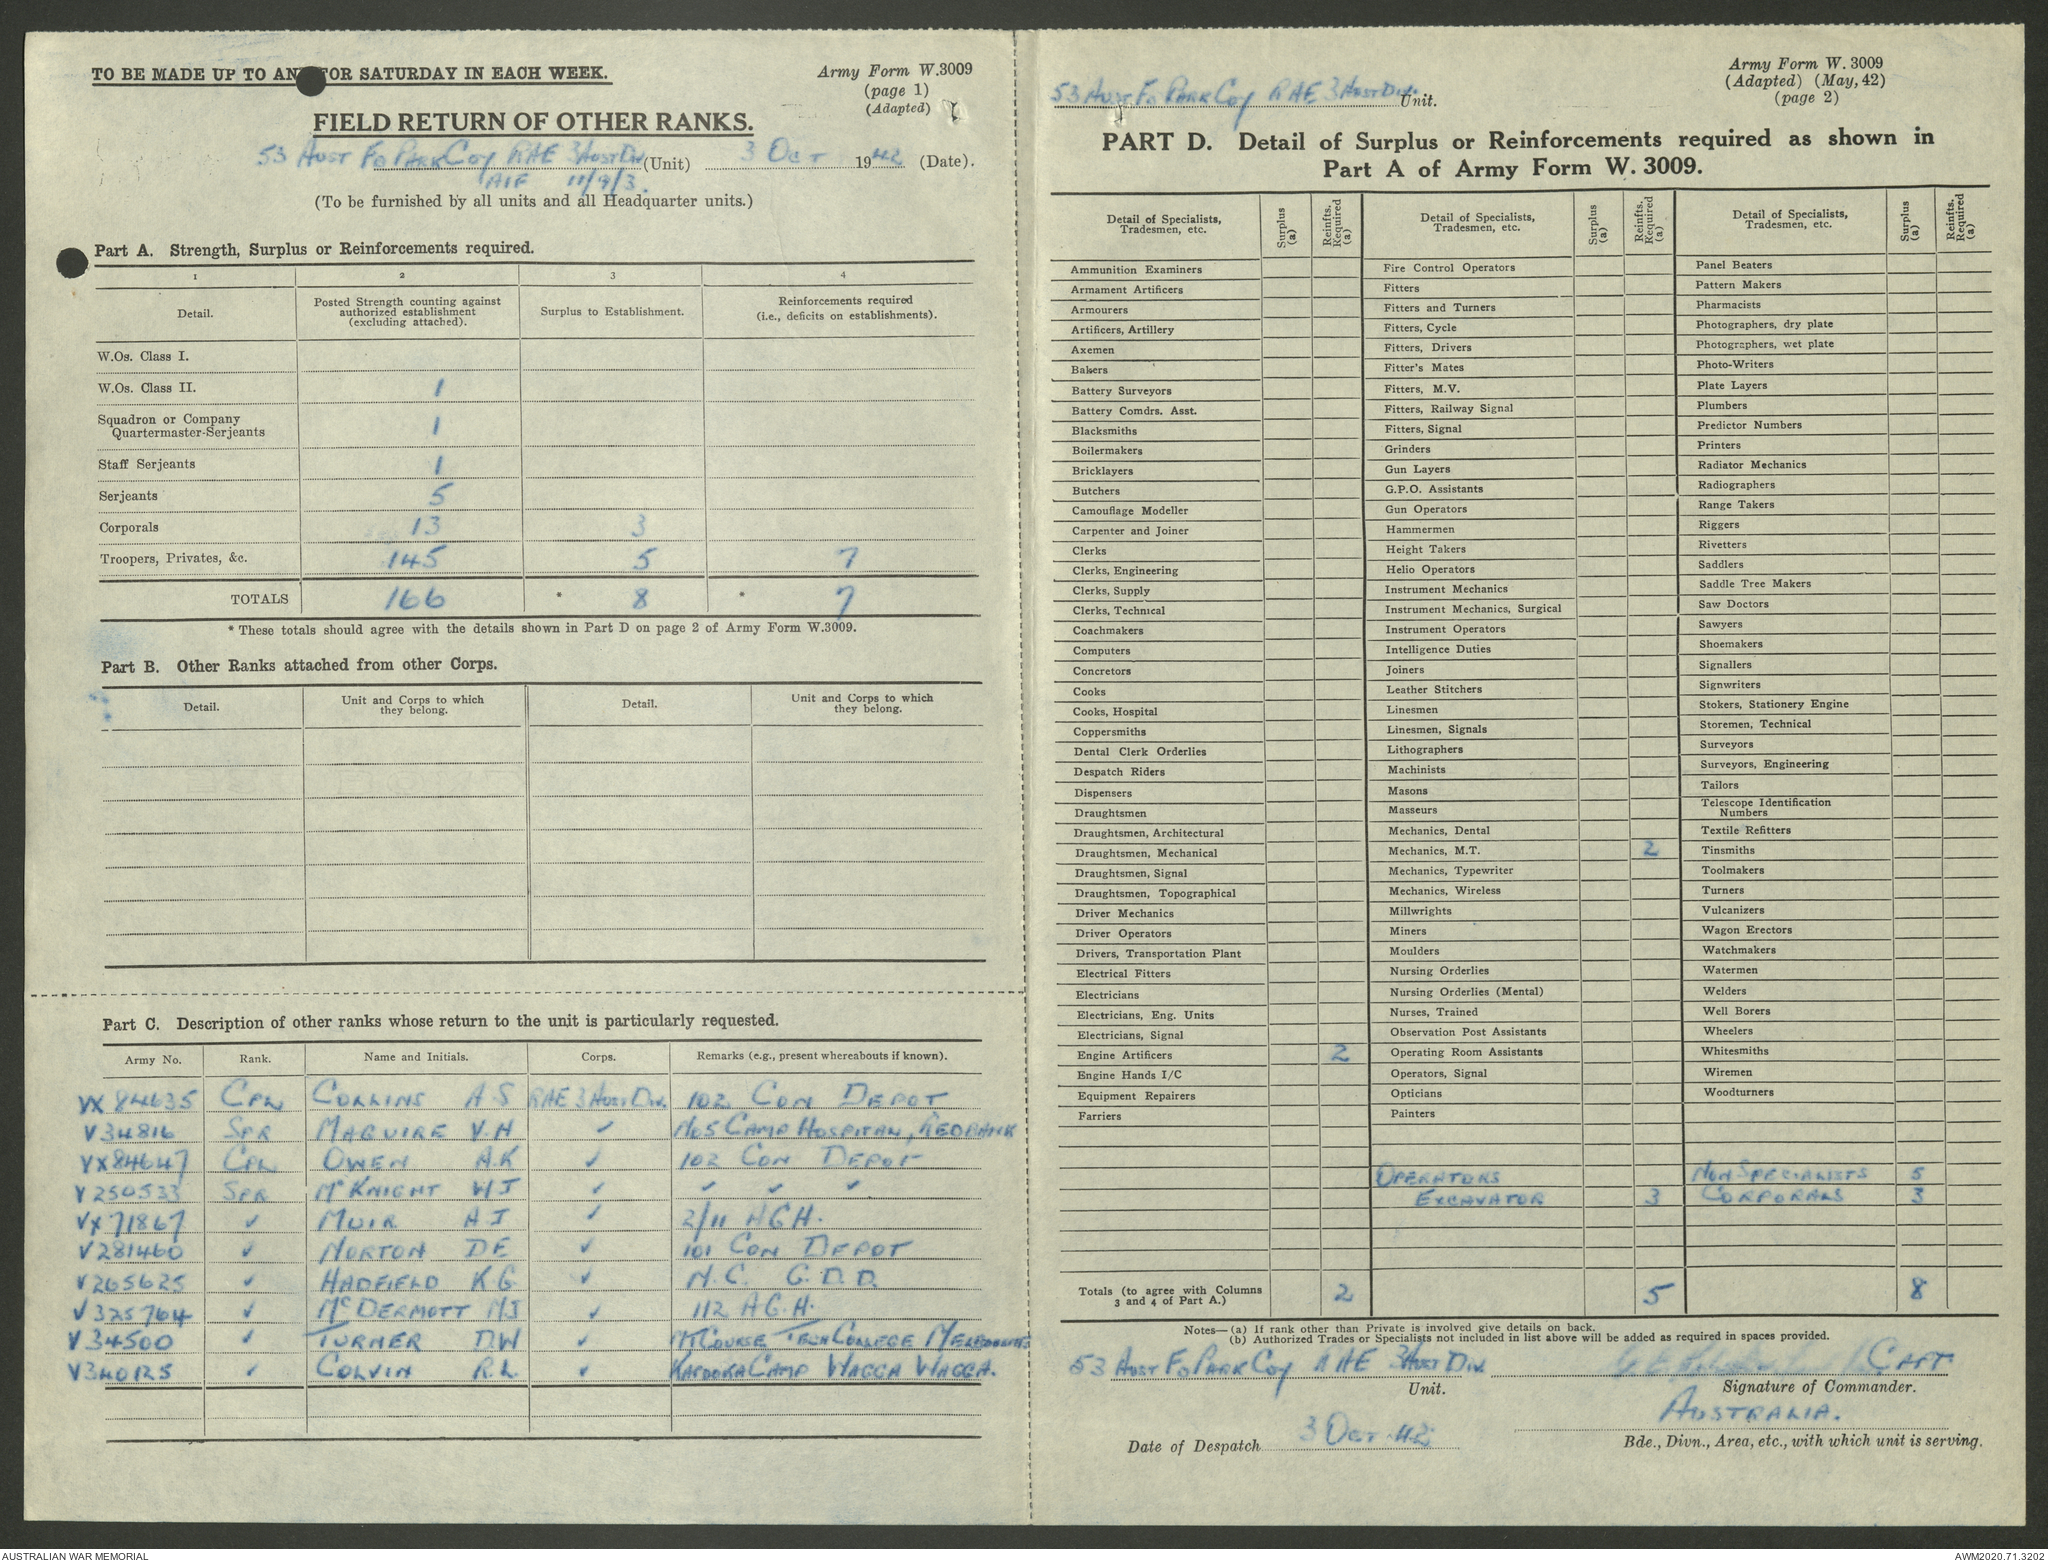 TO BE MADE UP TO AN FOR SATURDAY IN EACH WEEK.
Army Form W.3009
(page 1)
(Adapted)
FIELD RETURN OF OTHER RANKS.
53 Aust Fd Park Coy RAE 3 Aust Div (Unit) 3 Oct 1942 (Date).
AIF 11/9/3.
(To be furnished by all units and all Headquarter units.)
Part A. Strength, Surplus or Reinforcements required.
1 2 3 4
Detail. Posted Strength counting against authorized establishment (excluding attached). Surplus to Establishment. Reinforcements required (i.e., deficits on establishments).
W.Os. Class I.
W.Os. Class II. 1
Squadron or Company Quartermaster-Serjeants 1
Staff Serjeants 1
Serjeants 5
Corporals 13 3
Troopers, Privates, &c. 145 5 7
TOTALS 166 * 8 * 7
* These totals should agree with the details shown in Part D on page 2 of Army Form W.3009.
Part B. Other Ranks attached from other Corps.
Detail. Unit and Corps to which they belong. Detail. Unit and Corps to which they belong.
Part C. Description of other ranks whose return to the unit is particularly requested.
Army No. Rank. Name and Initials. Corps. Remarks (e.g., present whereabouts if known).
VX84635 CPL COLLINS A.S RAE 3 Aust Div. 102 CON DEPOT
V34816 SPR MAGUIRE V.H ✓ No 5 CAMP HOSPITAL, REDBANK
VX84647 CPL OWEN A.K ✓ 102 CON DEPOT
V250533 SPR McKNIGHT WJ ✓ ✓ ✓ ✓
VX71867 ✓ MUIR A.J ✓ 2/11 AGH.
V281460 ✓ NORTON DE ✓ 101 CON DEPOT
V265625 ✓ HADFIELD K.G ✓ N.C. G.D.D.
V325764 ✓ McDERMOTT MJ ✓ 112 AGH.
V34500 ✓ TURNER D.W ✓ MT COURSE TECH COLLEGE MELBOURNE
V340125 ✓ COLVIN R.L. ✓ KAPOOKA CAMP WAGGA WAGGA.
53 Aust Fd Park Coy RAE 3 Aust Div. Unit.
Army Form W. 3009
(Adapted) (May, 42)
(page 2)
PART D. Detail of Surplus or Reinforcements required as shown in
Part A of Army Form W. 3009.
Detail of Specialists, Tradesmen, etc. Surplus (a) Reinfts. Required (a) Detail of Specialists, Tradesmen, etc. Surplus (a) Reinfts. Required (a) Detail of Specialists, Tradesmen, etc. Surplus (a) Reinfts. Required (a)
Ammunition Examiners Fire Control Operators Panel Beaters
Armament Artificers Fitters Pattern Makers
Armourers Fitters and Turners Pharmacists
Artificers, Artillery Fitters, Cycle Photographers, dry plate
Axemen Fitters, Drivers Photographers, wet plate
Bakers Fitter's Mates Photo-Writers
Battery Surveyors Fitters, M.V. Plate Layers
Battery Comdrs. Asst. Fitters, Railway Signal Plumbers
Blacksmiths Fitters, Signal Predictor Numbers
Boilermakers Grinders Printers
Bricklayers Gun Layers Radiator Mechanics
Butchers G.P.O. Assistants Radiographers
Camouflage Modeller Gun Operators Range Takers
Carpenter and Joiner Hammermen Riggers
Clerks Height Takers Rivetters
Clerks, Engineering Helio Operators Saddlers
Clerks, Supply Instrument Mechanics Saddle Tree Makers
Clerks, Technical Instrument Mechanics, Surgical Saw Doctors
Coachmakers Instrument Operators Sawyers
Computers Intelligence Duties Shoemakers
Concretors Joiners Signallers
Cooks Leather Stitchers Signwriters
Cooks, Hospital Linesmen Stokers, Stationery Engine
Coppersmiths Linesmen, Signals Storemen, Technical
Dental Clerk Orderlies Lithographers Surveyors
Despatch Riders Machinists Surveyors, Engineering
Dispensers Masons Tailors
Draughtsmen Masseurs Telescope Identification Numbers
Draughtsmen, Architectural Mechanics, Dental Textile Refitters
Draughtsmen, Mechanical Mechanics, M.T. 2 Tinsmiths
Draughtsmen, Signal Mechanics, Typewriter Toolmakers
Draughtsmen, Topographical Mechanics, Wireless Turners
Driver Mechanics Millwrights Vulcanizers
Driver Operators Miners Wagon Erectors
Drivers, Transportation Plant Moulders Watchmakers
Electrical Fitters Nursing Orderlies Watermen
Electricians Nursing Orderlies (Mental) Welders
Electricians, Eng. Units Nurses, Trained Well Borers
Electricians, Signal Observation Post Assistants Wheelers
Engine Artificers 2 Operating Room Assistants Whitesmiths
Engine Hands I/C Operators, Signal Wiremen
Equipment Repairers Opticians Woodturners
Farriers Painters
OPERATORS NON SPECIALISTS 5
EXCAVATOR 3 CORPORALS 3
Totals (to agree with Columns 3 and 4 of Part A.) 2 5 8
Notes—(a) If rank other than Private is involved give details on back.
(b) Authorized Trades or Specialists not included in list above will be added as required in spaces provided.
53 Aust Fd Park Coy RAE 3 Aust Div. CAPT
Unit. Signature of Commander.
AUSTRALIA.
Date of Despatch 3 Oct 42 Bde., Divn., Area, etc., with which unit is serving.
AUSTRALIAN WAR MEMORIAL
AWM2020.71.3202